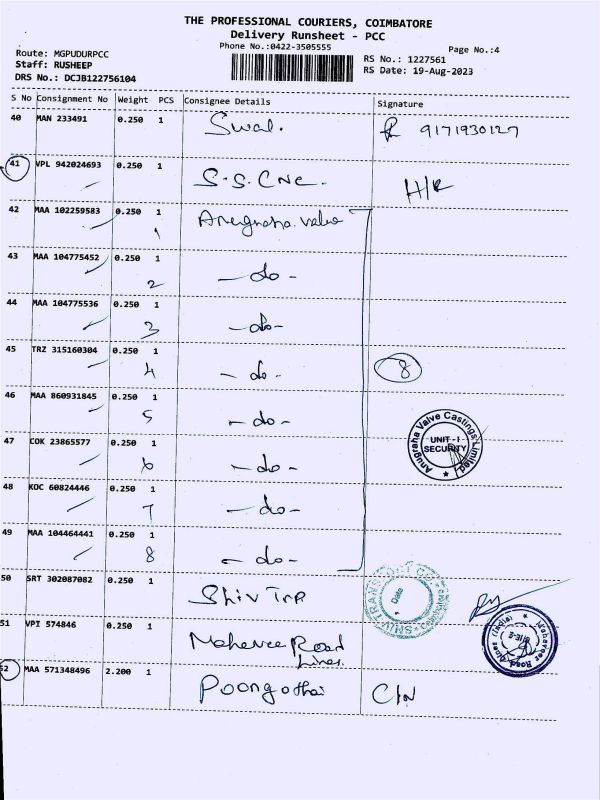 THE PROFESSIONAL COURIERS, COIMBATORE
Delivery Runsheet - PCC
Phone No.:0422-3505555
Page No.:4
Route: MGPUDURPCC
Staff: RUSHEEP
DRS No.: DCJB122756104
RS No.: 1227561
RS Date: 19-Aug-2023
S No Consignment No Weight PCS Consignee Details Signature
40 MAN 233491 0.250 1 Swal. 9171930127
41 VPL 942024693 0.250 1 S.S.CNC. H/R
42 MAA 102259583 0.250 1 Anugraha Valve
1
43 MAA 104775452 0.250 1 -do-
2
44 MAA 104775536 0.250 1 -do-
3
45 TRZ 315160304 0.250 1 -do- 8
4
46 MAA 860931845 0.250 1 -do-
5
Anugraha Valve Castings Limited
UNIT - I
SECURITY
47 COK 23865577 0.250 1 -do-
6
48 KOC 60824446 0.250 1 -do-
7
49 MAA 104464441 0.250 1 -do-
8
50 SRT 302087082 0.250 1 Shiv Trp
Date
51 VPI 574846 0.250 1 Maheveer Road
Lines.
52 MAA 571348496 2.200 1 Poongothai C/N